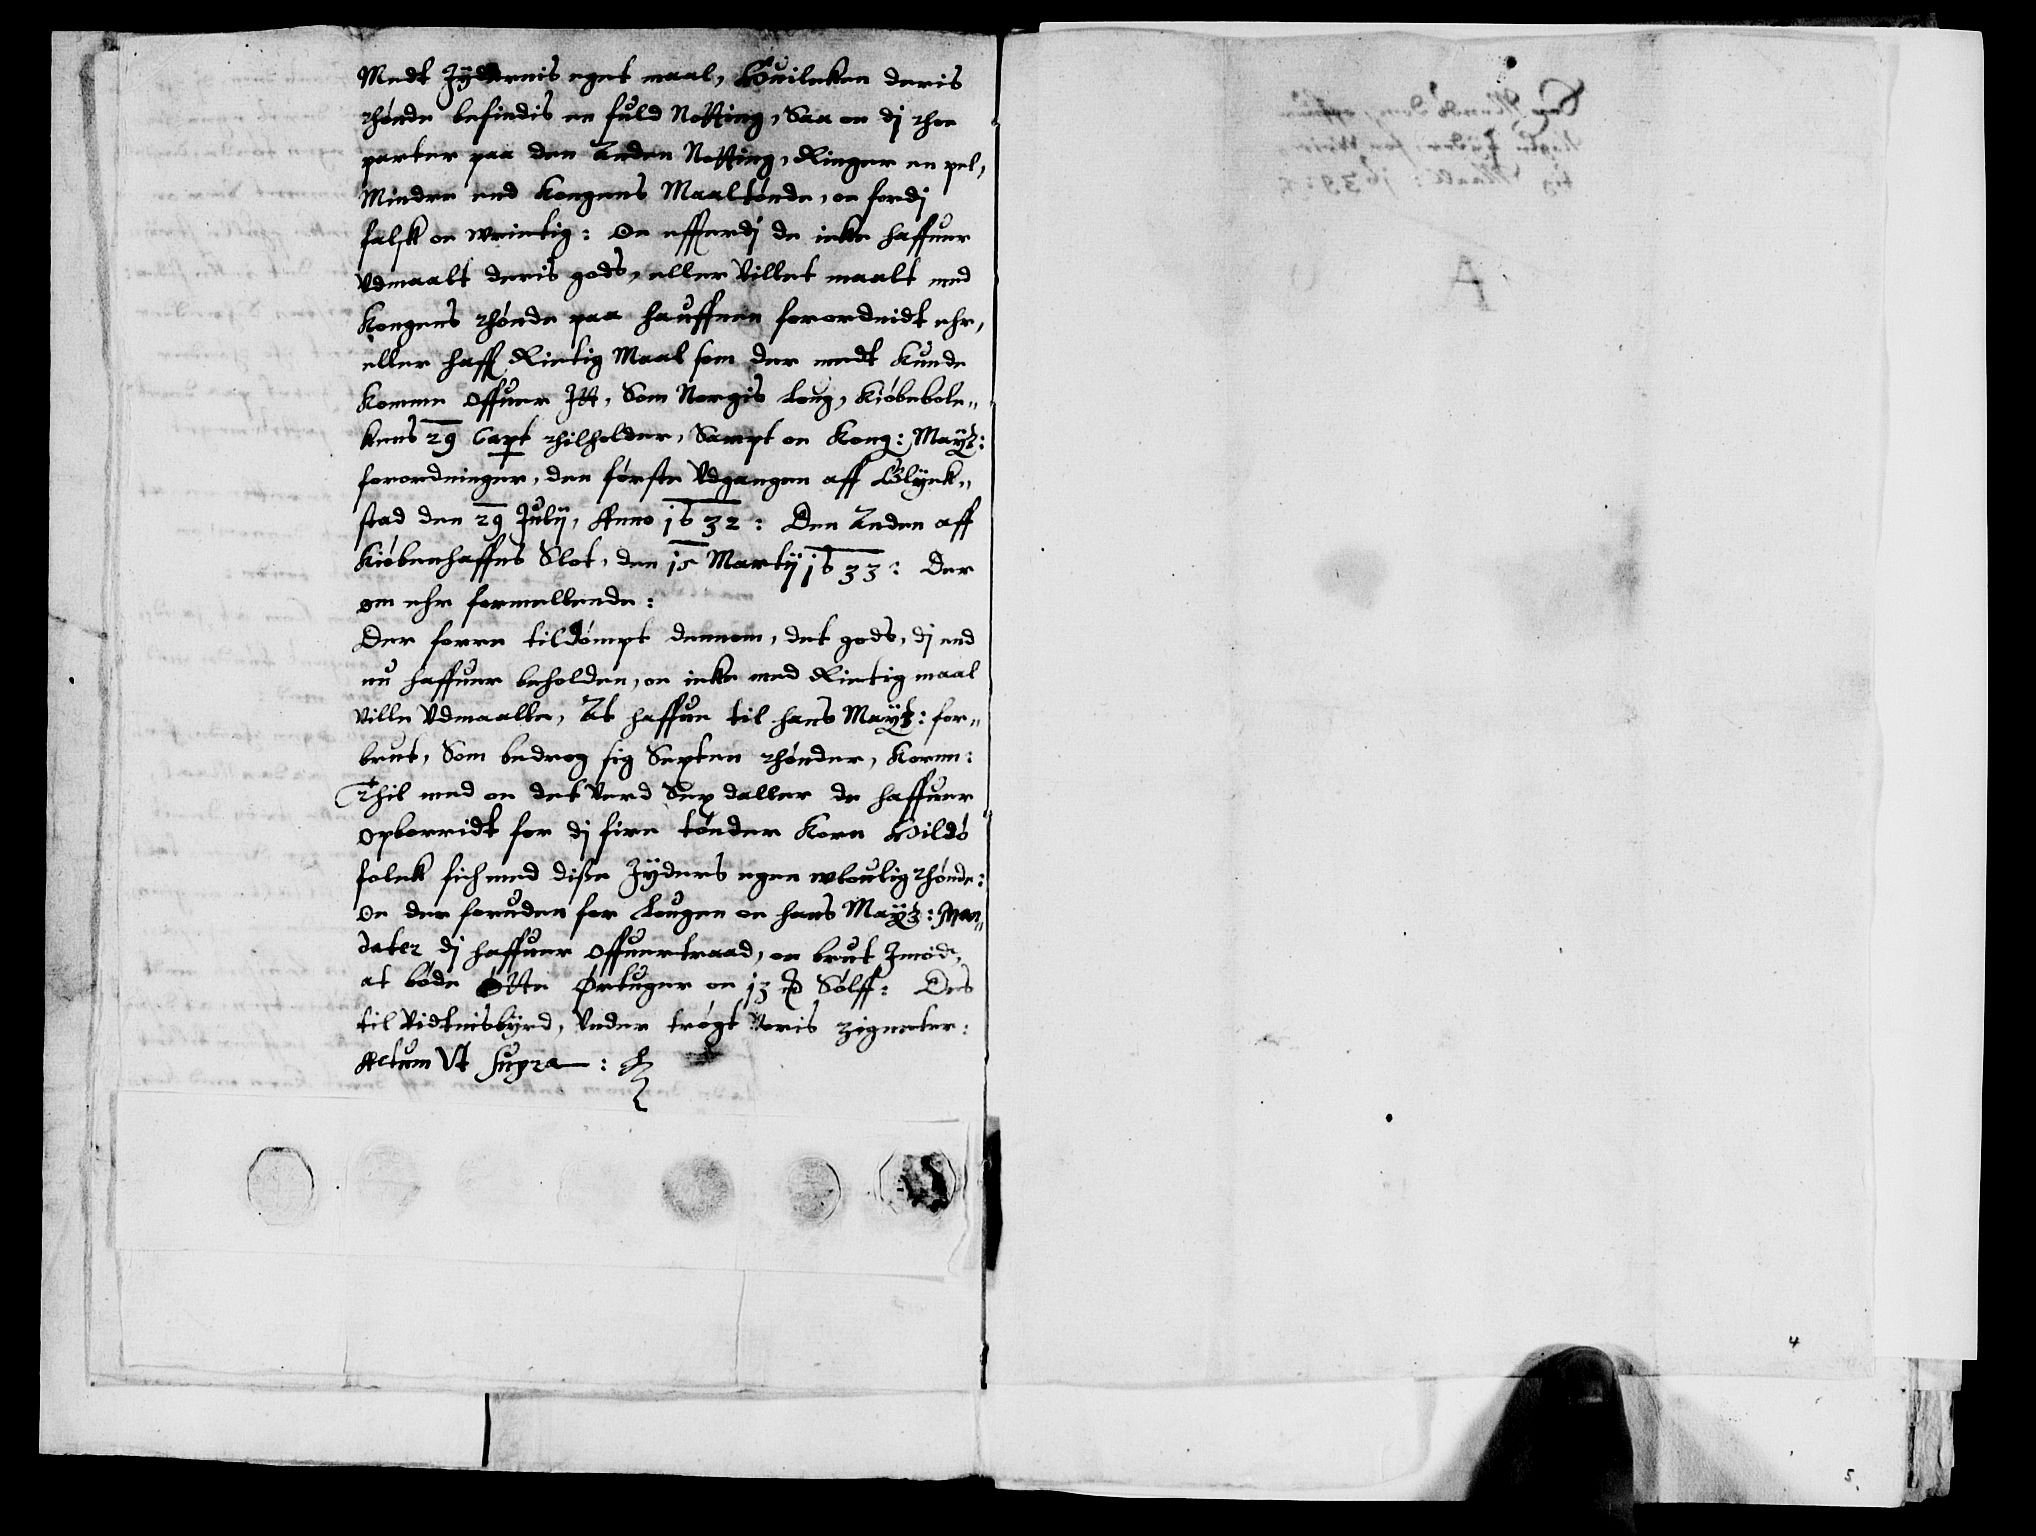 Medt Jydernis eget maal, Huilcken deris
thønde befindis en fuld Notting, Saa oc dj thoe
parter paa den Anden Notting, Ringer en pel,
Mindre end Kongens Maaltønde, oc fordj
falsk oc wrictig: Oc effterdj de icke haffuer
Vdmaalt deris gods, eller Villet maalt med
Kongens thønde paa hauffnen forordnidt ehr,
eller hafft Rictig Maal som der medt Kunde
Komme offuer Itt, Som Norgis Loug, Kiøbebole„
kens 29 Capt thilholder, Sampt oc Kong: Maytz:
forordninger, den første Vdgangen aff Glyck„
stad den 29 Julij, Anno 1632: Den Anden aff
Kiøbenhaffns Slot, den 15 Martij 1633: Der
om ehr formellende:
Der forre tildømpt dennem, det gods, dj end
nu haffuer beholden, oc icke med Rictig maal
Ville Vdmaalle, At haffue til hans Maytz: for„
brut, Som bedrog sig Sexten thønder, Korn:
Thil med oc det Verd Sex daller de haffuer
opborridt for dj fire tønder Korn
folck fich med disse Jyders egen wloulig thønde:
Oc der foruden for Lougen oc hans Maytz: Man„
dater dj haffuer offuertraad, oc brut Imod,
at bøde Otte Ørtuger oc 13 Sølff: Des
til Vidtnisbyrd, Vnder trøgt Voris zigneter:
Actum Vt Supra:
4
5